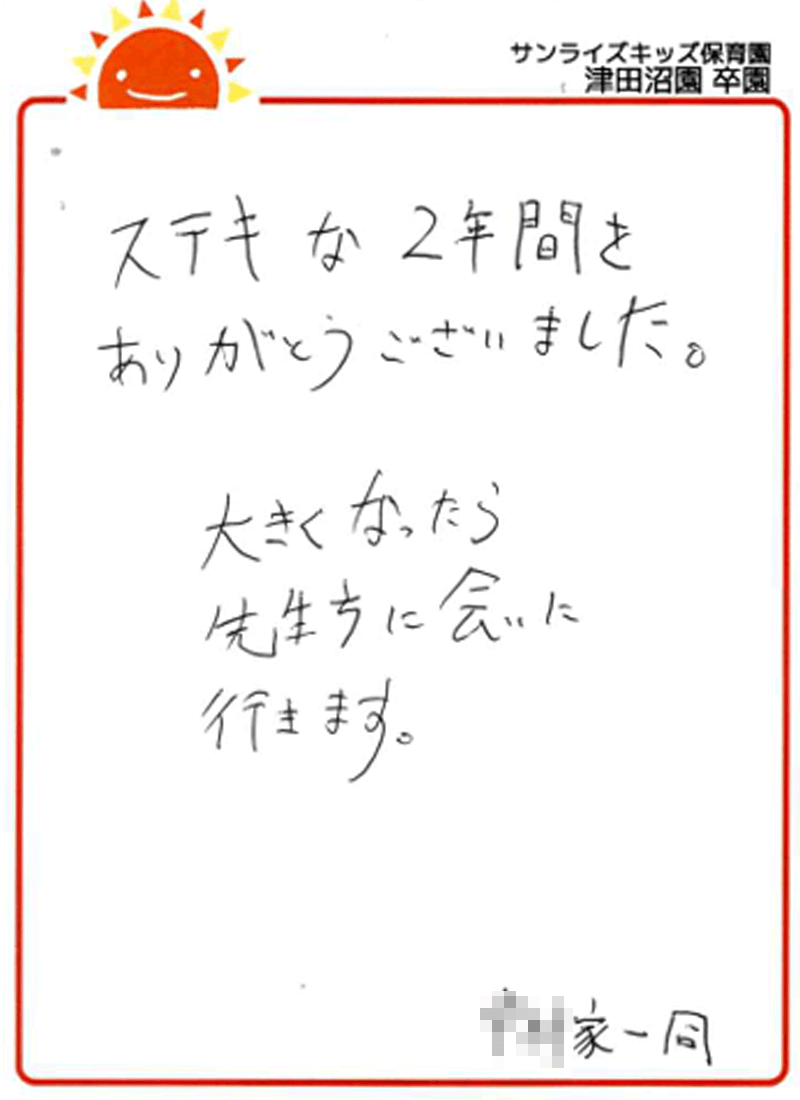 サンライズキッズ保育園
津田沼園 卒園
ステキな2年間を
ありがとうございました。
大きくなったら
先生方に会いに
行きます。
家一同